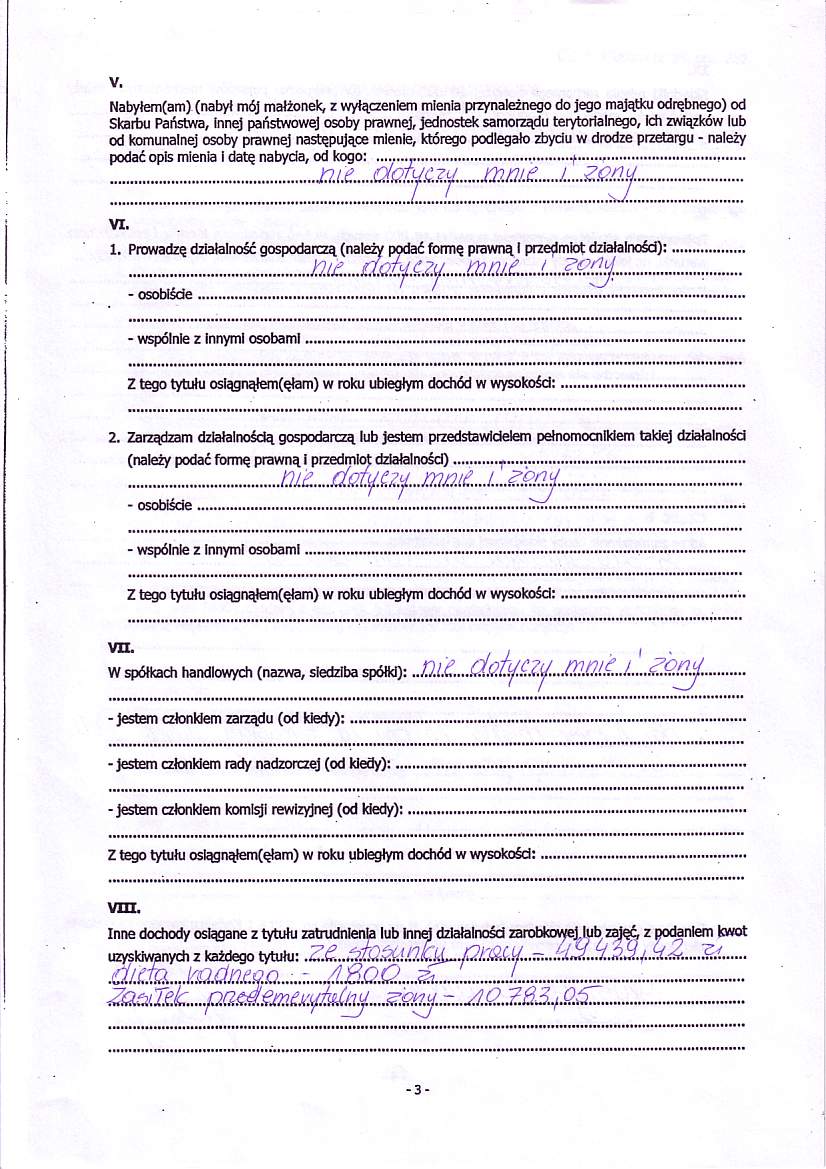 V.
Nabyłem(am) (nabył mój małżonek, z wyłączeniem mienia przynależnego do jego majątku odrębnego) od
Skarbu Państwa, innej państwowej osoby prawnej, jednostek samorządu terytorialnego, ich związków lub
od komunalnej osoby prawnej następujące mienie, którego podlegało zbyciu w drodze przetargu - należy
podać opis mienia i datę nabycia, od kogo: ....................
nie dotyczy mnie i żony
VI.
1. Prowadzę działalność gospodarczą (należy podać formę prawną i przedmiot działalności): ....................
nie dotyczy mnie i żony
- osobiście ....................
- wspólnie z innymi osobami ....................
Z tego tytułu osiągnąłem(ęłam) w roku ubiegłym dochód w wysokości: ....................
2. Zarządzam działalnością gospodarczą lub jestem przedstawicielem pełnomocnikiem takiej działalności
(należy podać formę prawną i przedmiot działalności) ....................
nie dotyczy mnie i żony
- osobiście ....................
- wspólnie z innymi osobami ....................
Z tego tytułu osiągnąłem(ęłam) w roku ubiegłym dochód w wysokości: ....................
VII.
W spółkach handlowych (nazwa, siedziba spółki): nie dotyczy mnie i żony
- jestem członkiem zarządu (od kiedy): ....................
- jestem członkiem rady nadzorczej (od kiedy): ....................
- jestem członkiem komisji rewizyjnej (od kiedy): ....................
Z tego tytułu osiągnąłem(ęłam) w roku ubiegłym dochód w wysokości: ....................
VIII.
Inne dochody osiągane z tytułu zatrudnienia lub innej działalności zarobkowej lub zajęć, z podaniem kwot
uzyskiwanych z każdego tytułu: ze stosunku pracy - 49 439,42 zł
dieta radnego - 1800 zł
Zasiłek przedemerytalny żony - 10 783,05
- 3 -